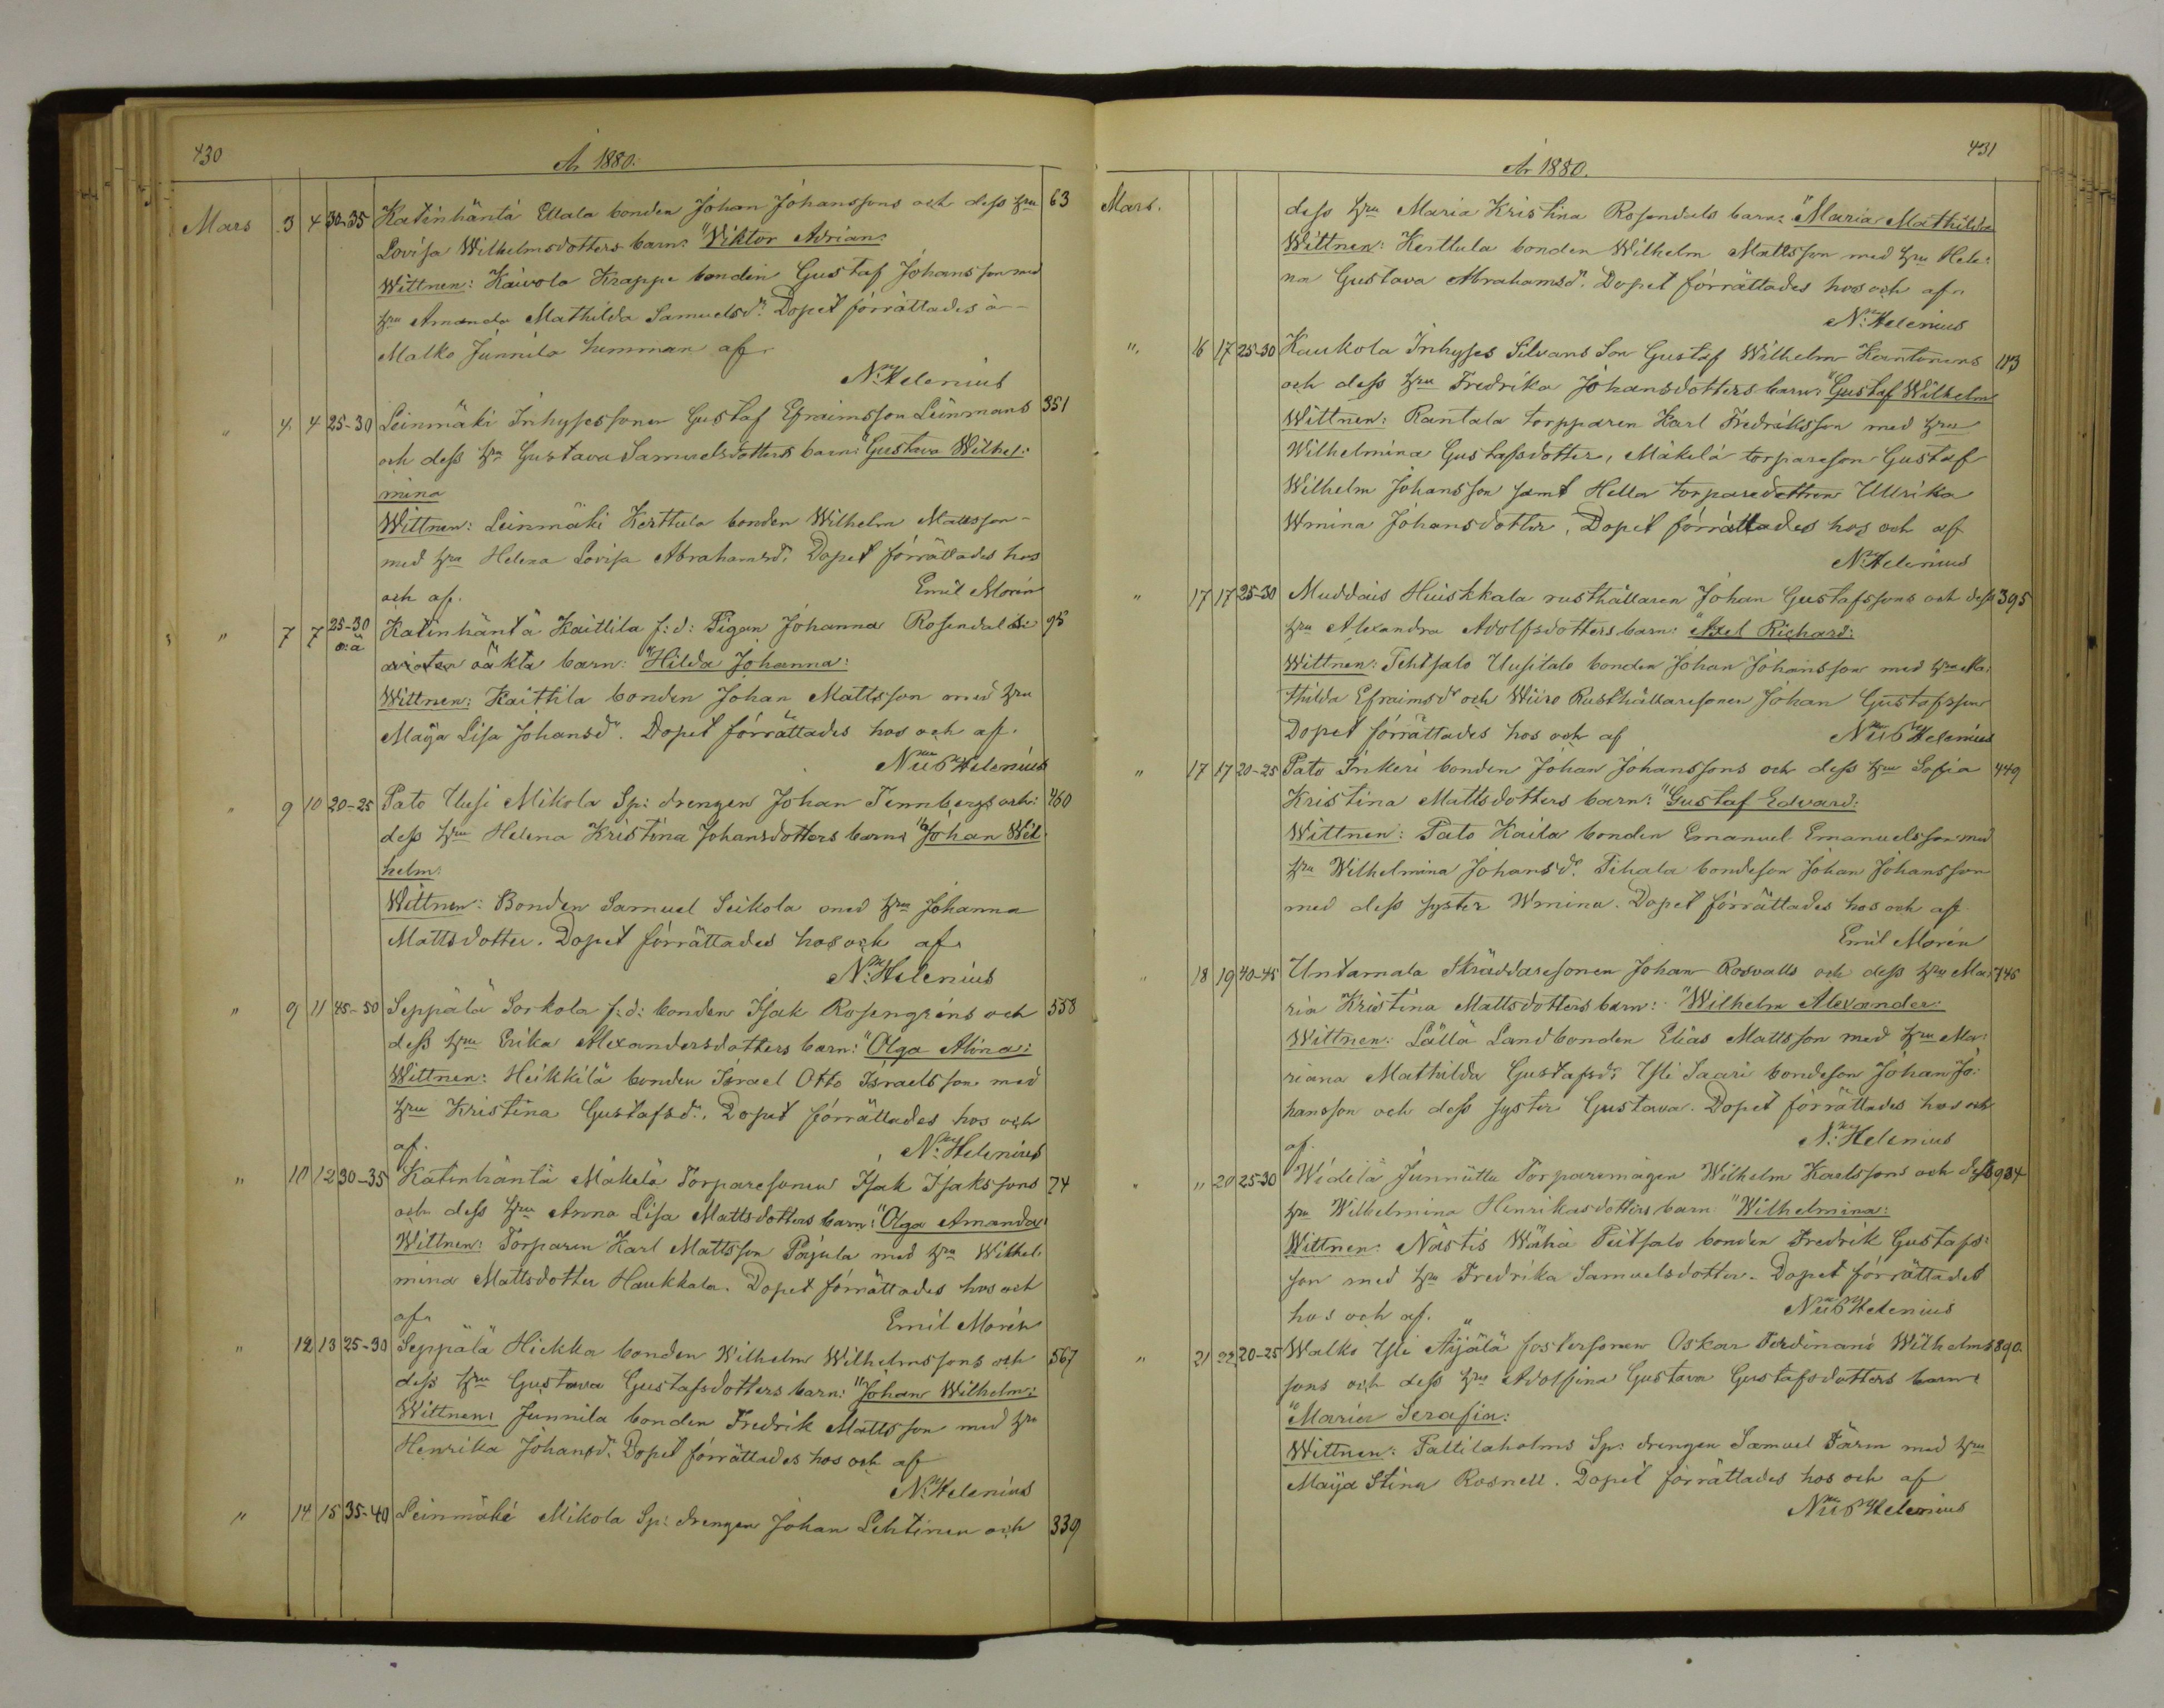 430
År 1880.
Mars 3 4 30-35 Katinhäntä Ellala bonden Johan Johanssons och dess hru 63
Lovisa Wilhelmsdotters barn: "Viktor Adrian:
Wittnen: Kaivola Krappe bonden Gustaf Johansson med
hru Amanda Mathilda Samuelsdr. Dopet förrättades å
Malko Junnila hemman af
N. Helenius
" 4 4 25-30 Leinmäki Inhysessonen Gustaf Efraimsson Leinmans 351
och dess hru Gustava Samuelsdotters barn: "Gustava Wilhel-
mina
Wittnen: Leinmäki Kerttula bonden Wilhelm Mattsson
med hru Helena Lovisa Abrahamsdr. Dopet förrättades hos
och af. Emil Morén
" 7 7 25-30 Katinhäntä Kaittila f:d: Pigan Johanna Rosendals 95
o:ä oäkta barn: "Hilda Johanna:
Wittnen: Kaittila bonden Johan Mattsson med hru
Maja Lisa Johansd. Dopet förrättades hos och af.
Nils Helenius
" 9 10 20-25 Pato Uusi Mikola Sp: drengen Johan Tennbergs och 460
dess hru Helena Kristina Johansdotters barn: "Johan Wil-
helm:
Wittnen: Bonden Samuel Seikola med hru Johanna
Mattsdotter. Dopet förrättades hos och af
N. Helenius
" 9 11 45-50 Seppälä Sorkola f:d: bonden Isak Rosengréns och 558
dess hru Erika Alexandersdotters barn: "Olga Alina:
Wittnen: Heikkilä bonden Israel Otto Israelsson med
hru Kristina Gustafsdr. Dopet förrättades hos och
af. N. Helenius
" 10 12 30-35 Katinhäntä Mäkelä Torparesonen Isak Isakssons 74
och dess hru Anna Lisa Mattsdotters barn: "Olga Amanda:
Wittnen: Torparen Karl Mattsson Pajula med hru Wilhel-
mina Mattsdotter Haukkala. Dopet förrättades hos och
af Emil Morén
" 12 13 25-30 Seppälä Hiekka bonden Wilhelm Wilhelmssons och 567
dess hru Gustava Gustafsdotters barn: "Johan Wilhelm:
Wittnen: Junnila bonden Fredrik Mattsson med hru
Henrika Johansdr. Dopet förrättades hos och af
N. Helenius
" 14 15 35-40 Leinmäki Mikola Sp: drengen Johan Lehtinen och 339
431
År 1880.
Mars. dess hru Maria Kristina Rosendals barn: "Maria Mathilda
Wittnen: Kerttula bonden Wilhelm Mattsson med hru Hele-
na Gustava Abrahamsdr. Dopet förrättades hos och af
N. Helenius
" 16 17 25-30 Kaukola Inhyses Silvans Son Gustaf Wilhelm Kantonens 113
och dess hru Fredrika Johansdotters barn: "Gustaf Wilhelm
Wittnen: Rantala torpparen Karl Fredriksson med hru
Wilhelmina Gustafsdotter, Mäkelä torpareson Gustaf
Wilhelm Johansson samt Hella torparedottren Ullrika
Wmina Johansdotter. Dopet förrättades hos och af
N. Helenius
" 17 17 25-30 Muddais Huiskkala rusthållaren Johan Gustafssons och dess 395
hru Alexandra Adolfsdotters barn: "Axel Richard:
Wittnen: Tehtsalo Uusitalo bonden Johan Johansson med hru Ma-
thilda Efraimsdr och Wiiro Rusthållaresonen Johan Gustafsson
Dopet förrättades hos och af Nils Helenius
" 17 17 20-25 Pato Inkeri bonden Johan Johanssons och dess hru Sofia 449
Kristina Mattsdotters barn: "Gustaf Edvard:
Wittnen: Pato Kaila bonden Emanuel Emanuelsson med
hru Wilhelmina Johansdr. Pihala bondeson Johan Johansson
med dess syster Wmina. Dopet förrättades hos och af
Emil Morén
" 18 19 40-45 Untamala Skräddaresonen Johan Rosvalls och dess hru Ma- 745
ria Kristina Mattsdotters barn: "Wilhelm Alexander:
Wittnen: Lällä Landbonden Elias Mattsson med hru Ma-
riana Mathilda Gustafsdr. Yli Saari bondeson Johan Jo-
hansson och dess syster Gustava. Dopet förrättades hos och
af. N. Helenius
" " 20 25-30 Widilä Junnuttu Torparemågen Wilhelm Karlssons och dess 934
hru Wilhelmina Henriksdotters barn "Wilhelmina:
Wittnen: Nästis Wähä Piitsalo bonden Fredrik Gustafs-
son med hru Fredrika Samuelsdotter. Dopet förrättades
hos och af. Nils Helenius
" 21 22 20-25 Walko Yli Äijälä fostersonen Oskar Ferdinand Wilhelms- 890
sons och dess hru Adolfina Gustava Gustafsdotters barn:
"Maria Serafia:
Wittnen: Palttilaholms Sp: drengen Samuel Färm med hru
Maja Stina Rosnell. Dopet förrättades hos och af
Nils Helenius